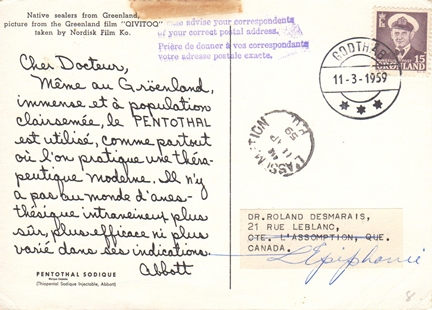 Native sealers from Greenland,
picture from the Greenland film "QIVITOQ"
taken by Nordisk Film Ko.
advise your correspondents
of your correct postal address.
Prière de donner à vos correspondants
votre adresse postale exacte.
15
GRØNLAND
GODTHÅB
11-3-1959
Cher Docteur,
Même au Gröenland,
immense et à population
clairsemée, le PENTOTHAL
est utilisé, comme partout
où l'on pratique une théra-
peutique moderne. Il n'y
a pas au monde d'anes-
thésique intraveineux plus
sûr, plus efficace ni plus
varié dans ses indications.
Abbott
L'ASSOMPTION
AM
11 AP
59
P.Q.
DR. ROLAND DESMARAIS,
21 RUE LEBLANC,
CTE. L'ASSOMPTION, QUE.
CANADA.
L'Epiphanie
PENTOTHAL SODIQUE
(Thiopental Sodique Injectable, Abbott)
8